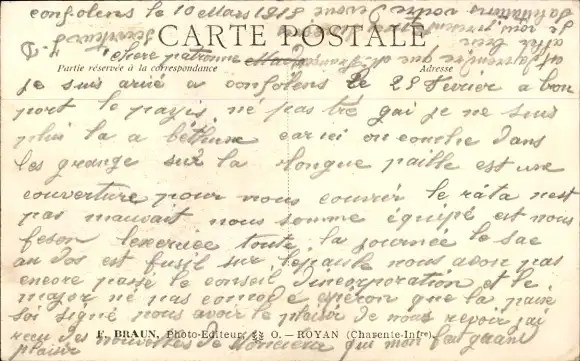 confolens le 10 Mars 1915
CARTE POSTALE
chere patronne
Partie réservée à la correspondance
Adresse
je suis arivé a confolens le 25 fevrier a bon
port le pazis né pas tré gai je ne suis
plui la a béthune car ici on couche dans
les grange sur la longue paille est une
couverture pour nous couvrir le rata nest
pas mauvait nous somme équipé est nous
feson lexercice toute la journée le sac
au dos est fusil sur lepaule nous avon pas
encore passé le conseil dincorporation et le
major né pas comode espéron que la paise
soi signé pous avoir le plaisir de nous revoir jai
F. BRAUN, Photo-Editeur, O. — ROYAN (Charente-Infre)
recu des nouvelles de qui mon fait grand
plaisir